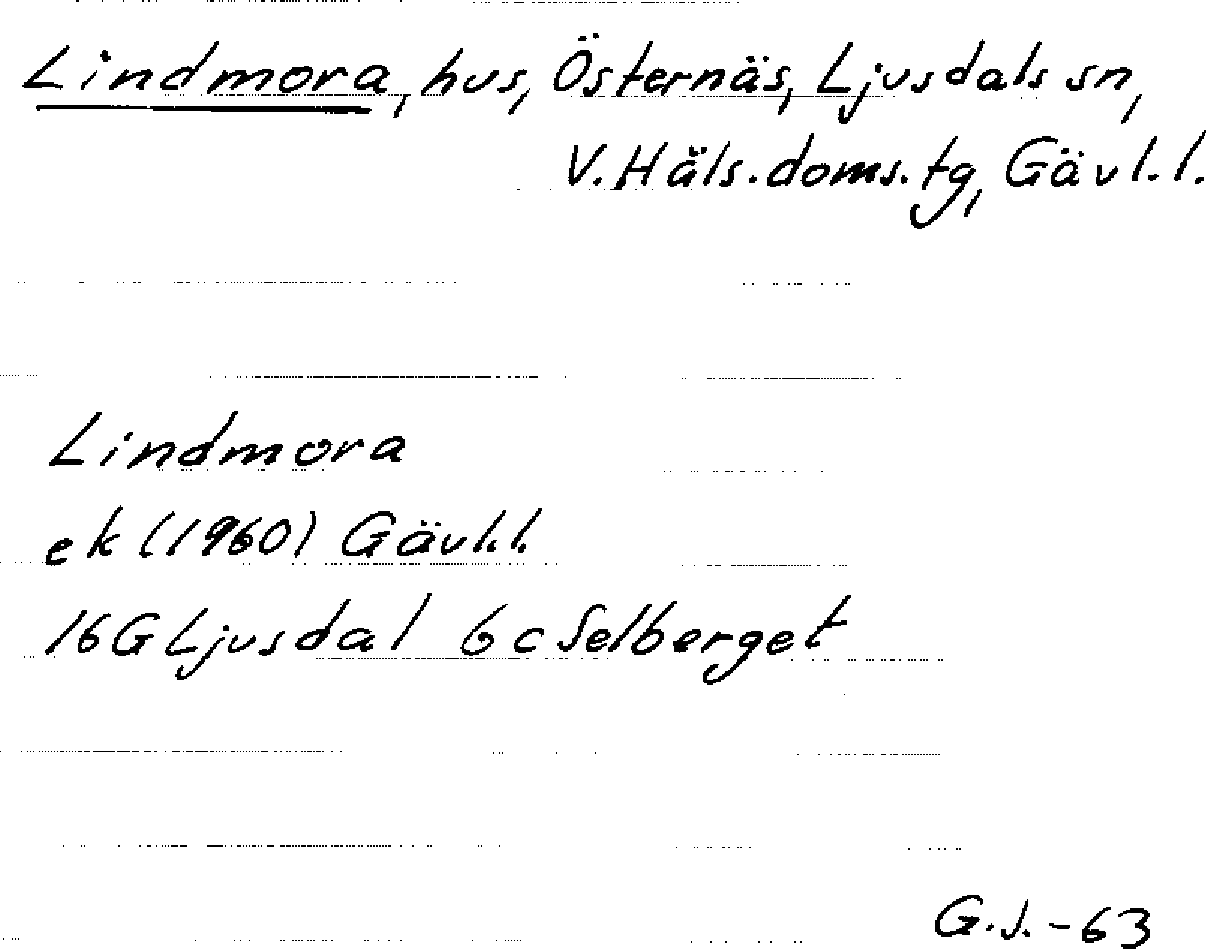 Lindmora, hus, Östernäs, Ljusdals sn,
V. Häls. doms. tg, Gävl. l.
Lindmora
ek (1960) Gävl. l.
16G Ljusdal 6c Selberget
G.J. -63